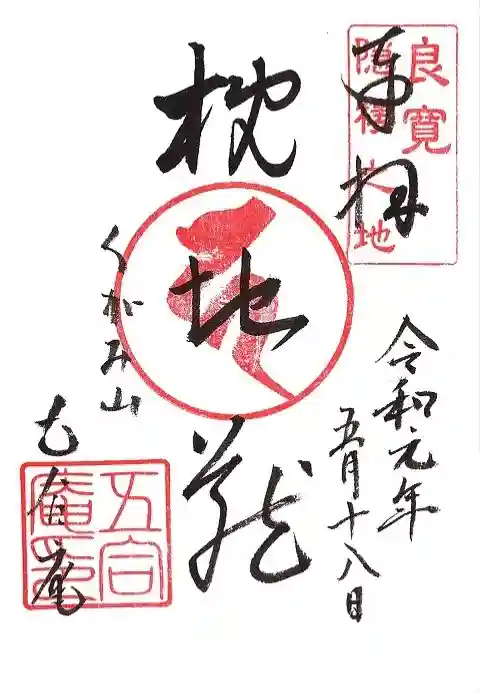 奉拝
良寛
隠棲 地
令和元年
五月十八日
枕地蔵
くがみ山
五合庵
五合
庵印